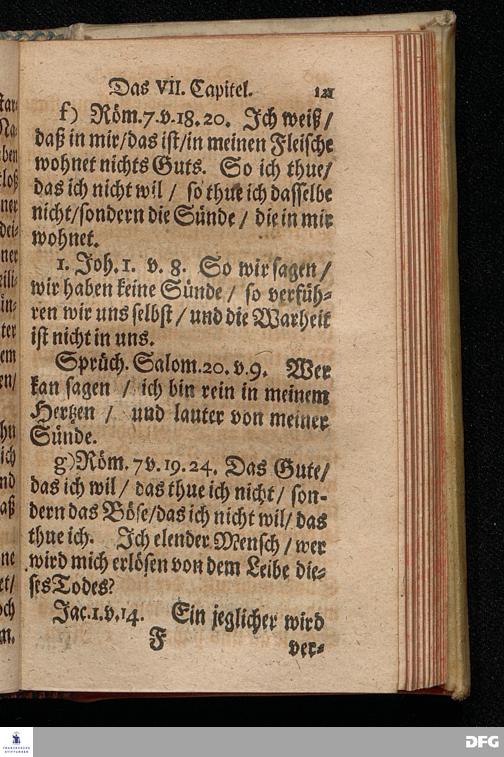 Das VII. Capitel. 121
f) Röm. 7. v. 18. 20. Ich weiß /
daß in mir/das ist/in meinen Fleische
wohnet nichts Guts. So ich thue/
das ich nicht wil / so thue ich dasselbe
nicht/sondern die Sünde / die in mir
wohnet.
1. Joh. 1. v. 8. So wir sagen /
wir haben keine Sünde / so verfüh⸗
ren wir uns selbst / und die Warheit
ist nicht in uns.
Sprüch. Salom. 20. v. 9. Wer
kan sagen / ich bin rein in meinem
Hertzen / und lauter von meiner
Sünde.
g) Röm. 7 v. 19. 24. Das Gute/
das ich wil / das thue ich nicht / son⸗
dern das Böse/das ich nicht wil/ das
thue ich. Ich elender Mensch / wer
wird mich erlösen von dem Leibe die⸗
ses Todes?
Jac. 1. v. 14. Ein jeglicher wird
F ver⸗
FRANCKESCHE
STIFTUNGEN
DFG